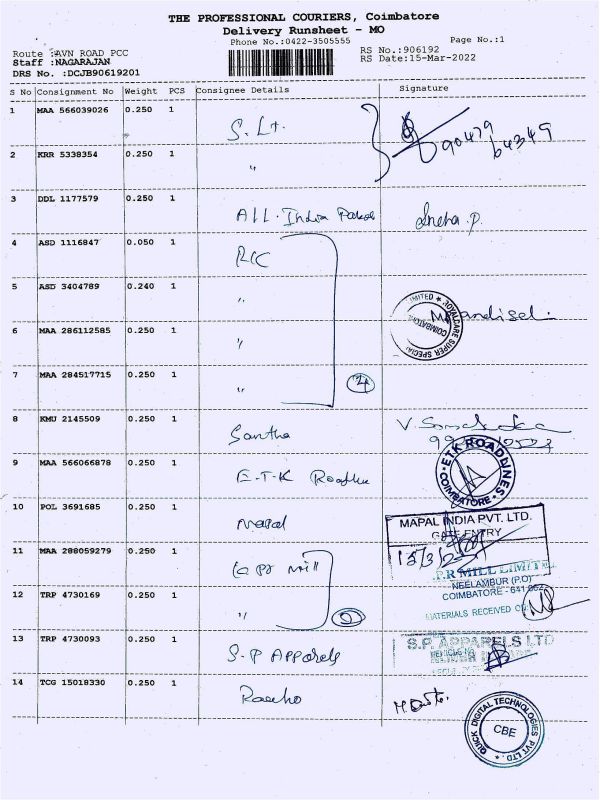 THE PROFESSIONAL COURIERS, Coimbatore
Delivery Runsheet - MO
Phone No.:0422-3505555
Page No.:1
Route :AVN ROAD PCC
RS No.:906192
Staff :NAGARAJAN
RS Date:15-Mar-2022
DRS No. :DCJB90619201
S No Consignment No Weight PCS Consignee Details Signature
1 MAA 566039026 0.250 1
2 KRR 5338354 0.250 1 "
3 DDL 1177579 0.250 1 All India
4 ASD 1116847 0.050 1
5 ASD 3404789 0.240 1 "
6 MAA 286112585 0.250 1 "
LIMITED * ROYALCARE SUPER SPECIAL
COIMBATORE
7 MAA 284517715 0.250 1 " 4
8 KMU 2145509 0.250 1 Santha
9 MAA 566066878 0.250 1 E.T.K
ETK ROADLINES
COIMBATORE
10 POL 3691685 0.250 1 Mapal
MAPAL INDIA PVT. LTD.
GATE ENTRY
15/3/
11 MAA 288059279 0.250 1 mill
P.R MILL LIMIT
NEELAMBUR (P.O)
COIMBATORE - 641 062
12 TRP 4730169 0.250 1 "
MATERIALS RECEIVED ON
13 TRP 4730093 0.250 1 S.P Apparels
S.P. APPARELS LTD
14 TCG 15018330 0.250 1
QUICK DIGITAL TECHNOLOGIES PVT LTD.
CBE